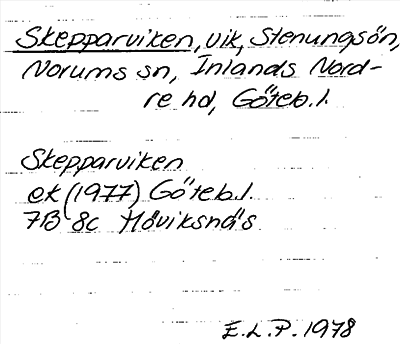 Skepparviken, vik, Stenungsön,
Norums sn, Inlands Nord-
re hd, Göteb.l.
Skepparviken
ek (1977) Göteb.l.
7B 8c Höviksnäs
E.L.P. 1978